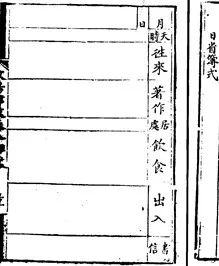 日省簿式
月
日
天時
徃來
著作
居處
飲食
出入
書信